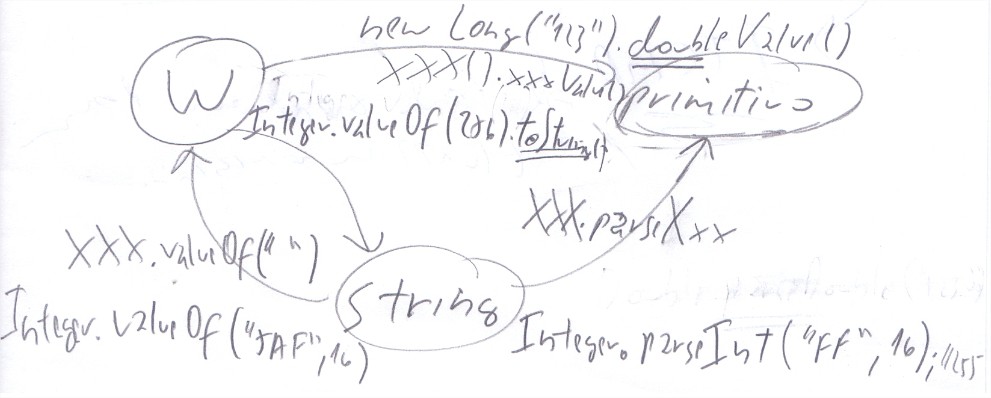 new Long("123").doubleValue()
W
XXX().xxxValue()
primitivo
Integer.valueOf().toString()
XXX.parseXxx
XXX.valueOf(" ")
String
Integer.valueOf(" ",16)
Integer.parseInt("FF",16);//255